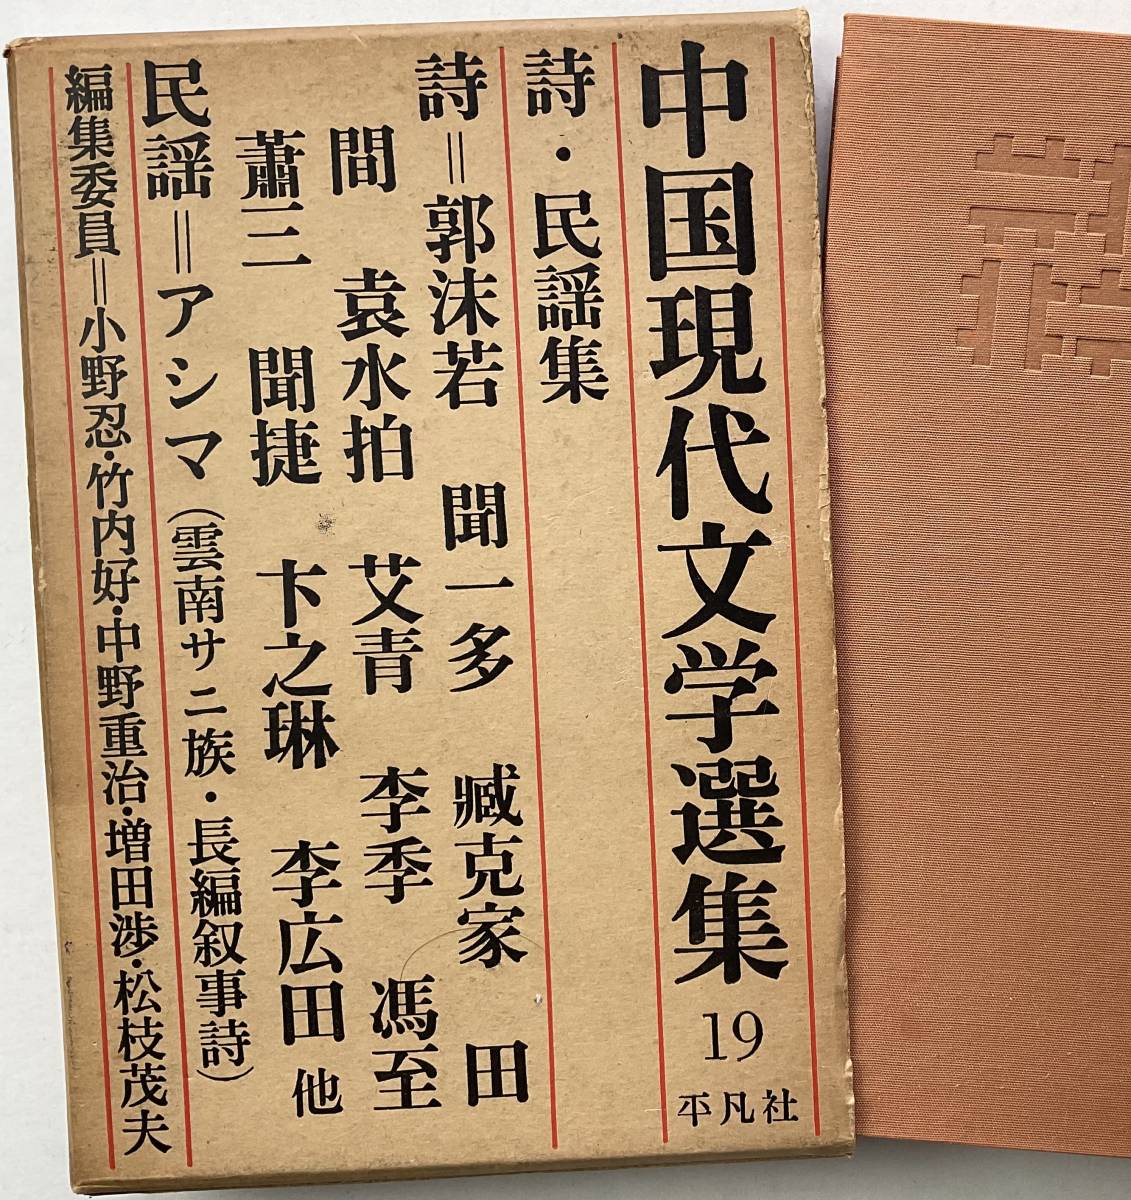 中国現代文学選集 19 平凡社
詩・民謡集
詩＝郭沫若 聞一多 臧克家 田
間 袁水拍 艾青 李季 馮至
蕭三 聞捷 卞之琳 李広田 他
民謡＝アシマ(雲南サニ族・長編叙事詩)
編集委員＝小野忍・竹内好・中野重治・増田渉・松枝茂夫